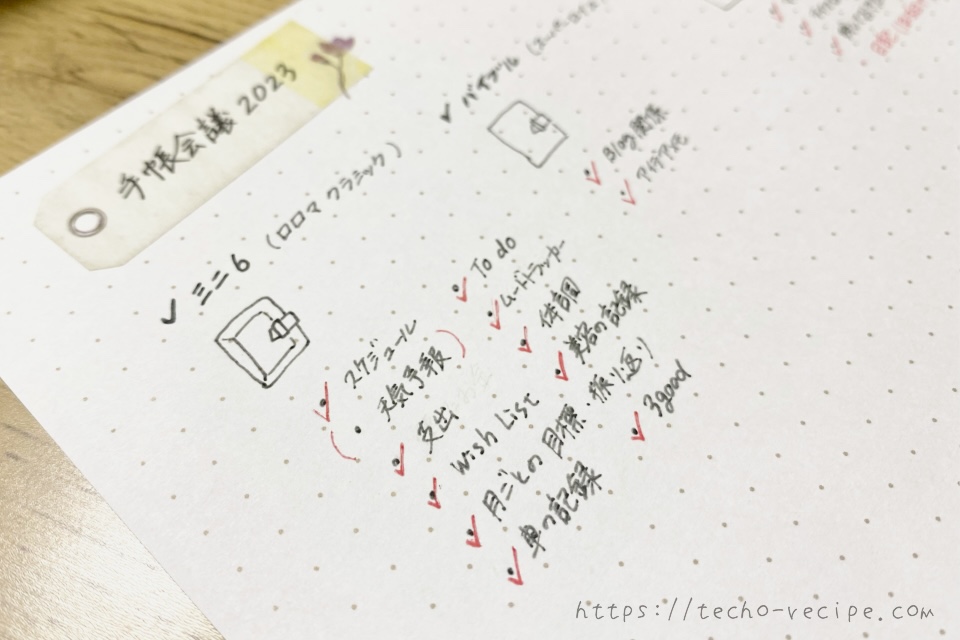 手帳会議 2023
✓ ミニ6 (ロロマ クラシック)
・スケジュール
(・天気予報)
・支出
・Wish List
・月ごとの目標・振り返り
・車の記録
・To do
・ムードトラッカー
・体調
・美容の記録
・3good
✓ バイブル
Blog関係
アイデア
https://techo-recipe.com